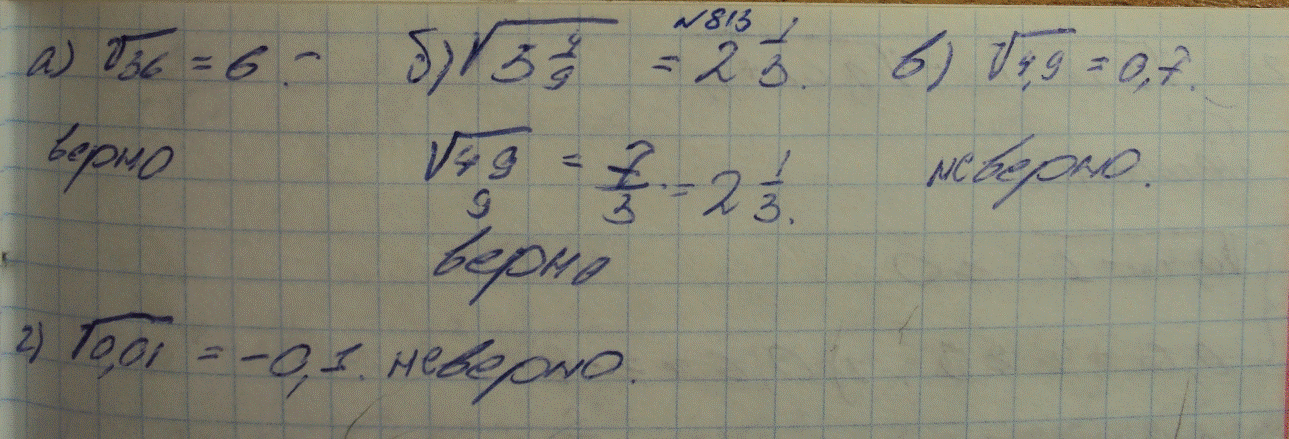 №813
а) √36 = 6. – б) √5 4/9 = 2 1/3. в) √4,9 = 0,7.
верно √49/9 = 7/3 = 2 1/3. неверно.
верно
г) √0,01 = -0,1. неверно.